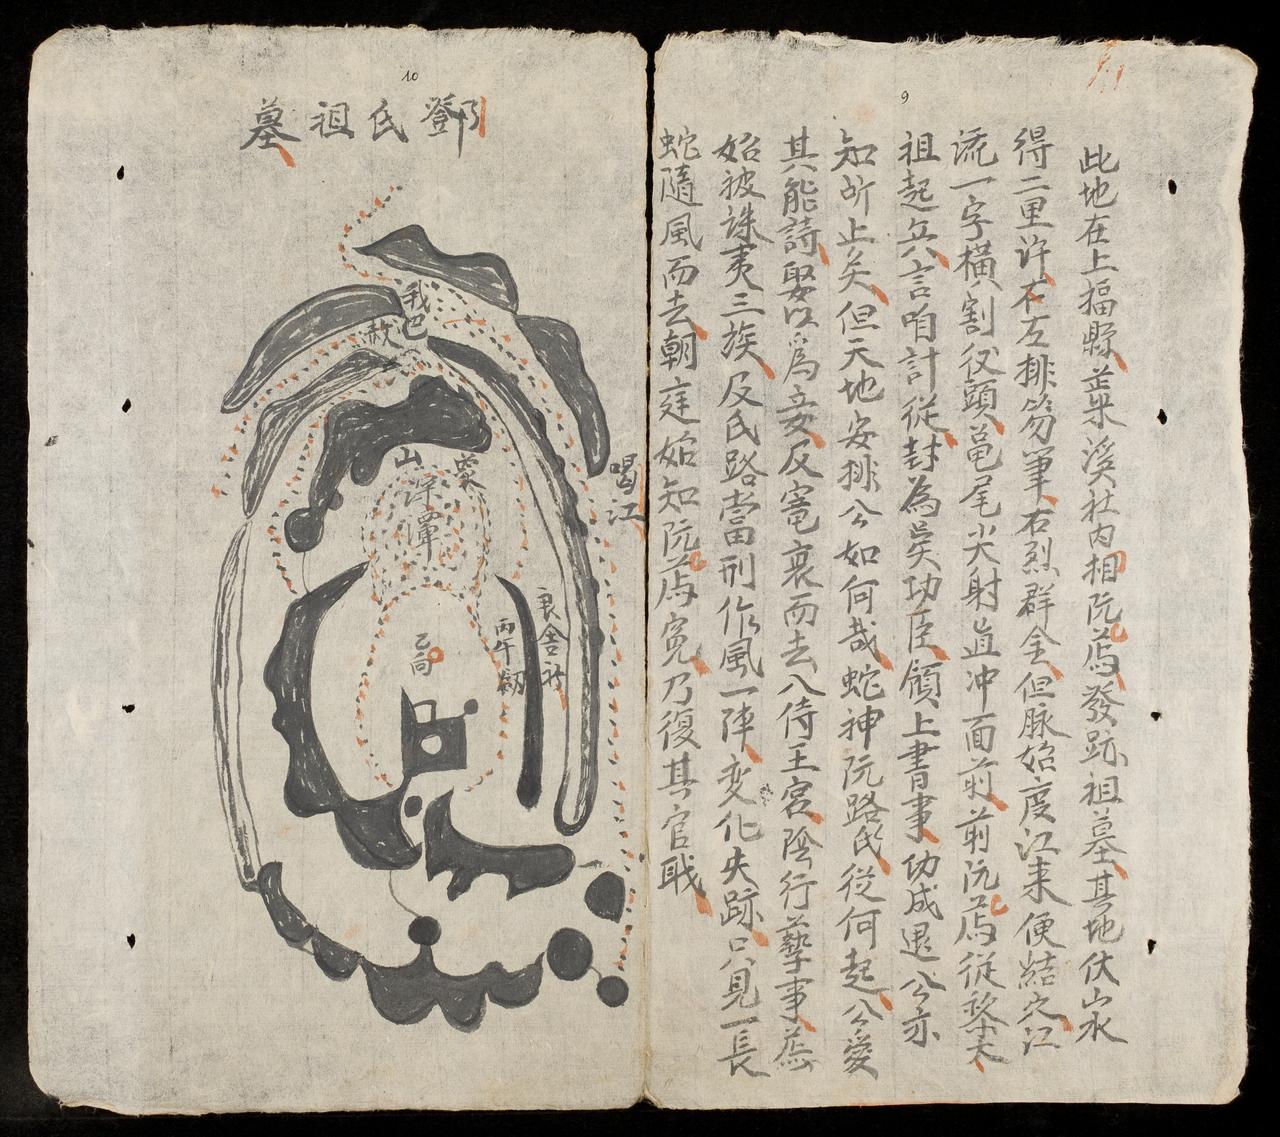 9
此地在上福縣蘂溪社内相阮廌發跡祖墓其地伏山水
得二里许右左排笏筆右烈群金但脉始度江来便結穴江
流一字横割役頭黽尾尖射直冲面前前阮廌従黎太
祖起兵言咱計従封為吴功臣領上書事功成退公亦
知所止矣但天地安排公如何哉蛇神阮路氏従何起公愛
其能詩娶以爲妾及寵衰而去入侍王宮陰行孽事廌
始被誅夷三族及氏路當刑作風一陣变化失跡只見一長
蛇隨風而去朝庭始知阮廌寃乃復其官戢
10
鄧氏祖墓
我巴
赦
喝江
山
深潭
艮舍社
丙午
乙向